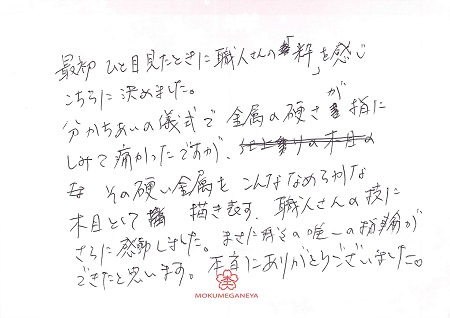 最初 ひと目見たときに職人さんの「粋」を感じ
こちらに決めました。
分かちあいの儀式で 金属の硬さが 指に
しみて痛かったですが、
その硬い金属を こんななめらかな
木目として 描き表す、職人さんの技に
さらに感動しました。まさに の唯一の指輪が
できたと思います。本当にありがとうございました♡
MOKUMEGANEYA